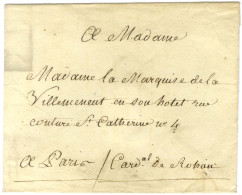 A Madame
Madame la Marquise de la
Villemenent en son hotel rue
couture St Catherine no 4
A Paris / Card.al de Rohan